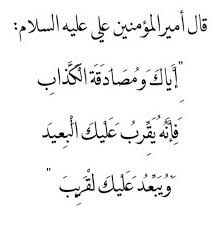 قال أمير المؤمنين علي عليه السلام:
"إِيَّاكَ وَمُصَادَقَةَ الْكَذَّابِ
فَإِنَّهُ يُقَرِّبُ عَلَيْكَ الْبَعِيدَ
وَيُبَعِّدُ عَلَيْكَ لقَرِيبَ "